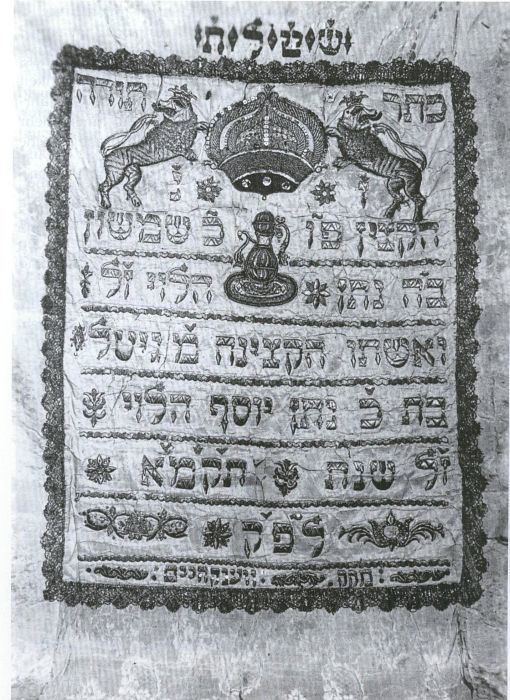 כתר תורה
הקצין פו כ שמשון
בה נתן הלוי זל
ואשתו הקצינה מ גיטל
בת כ נתן יוסף הלוי
זל שנת תקמא
לפק